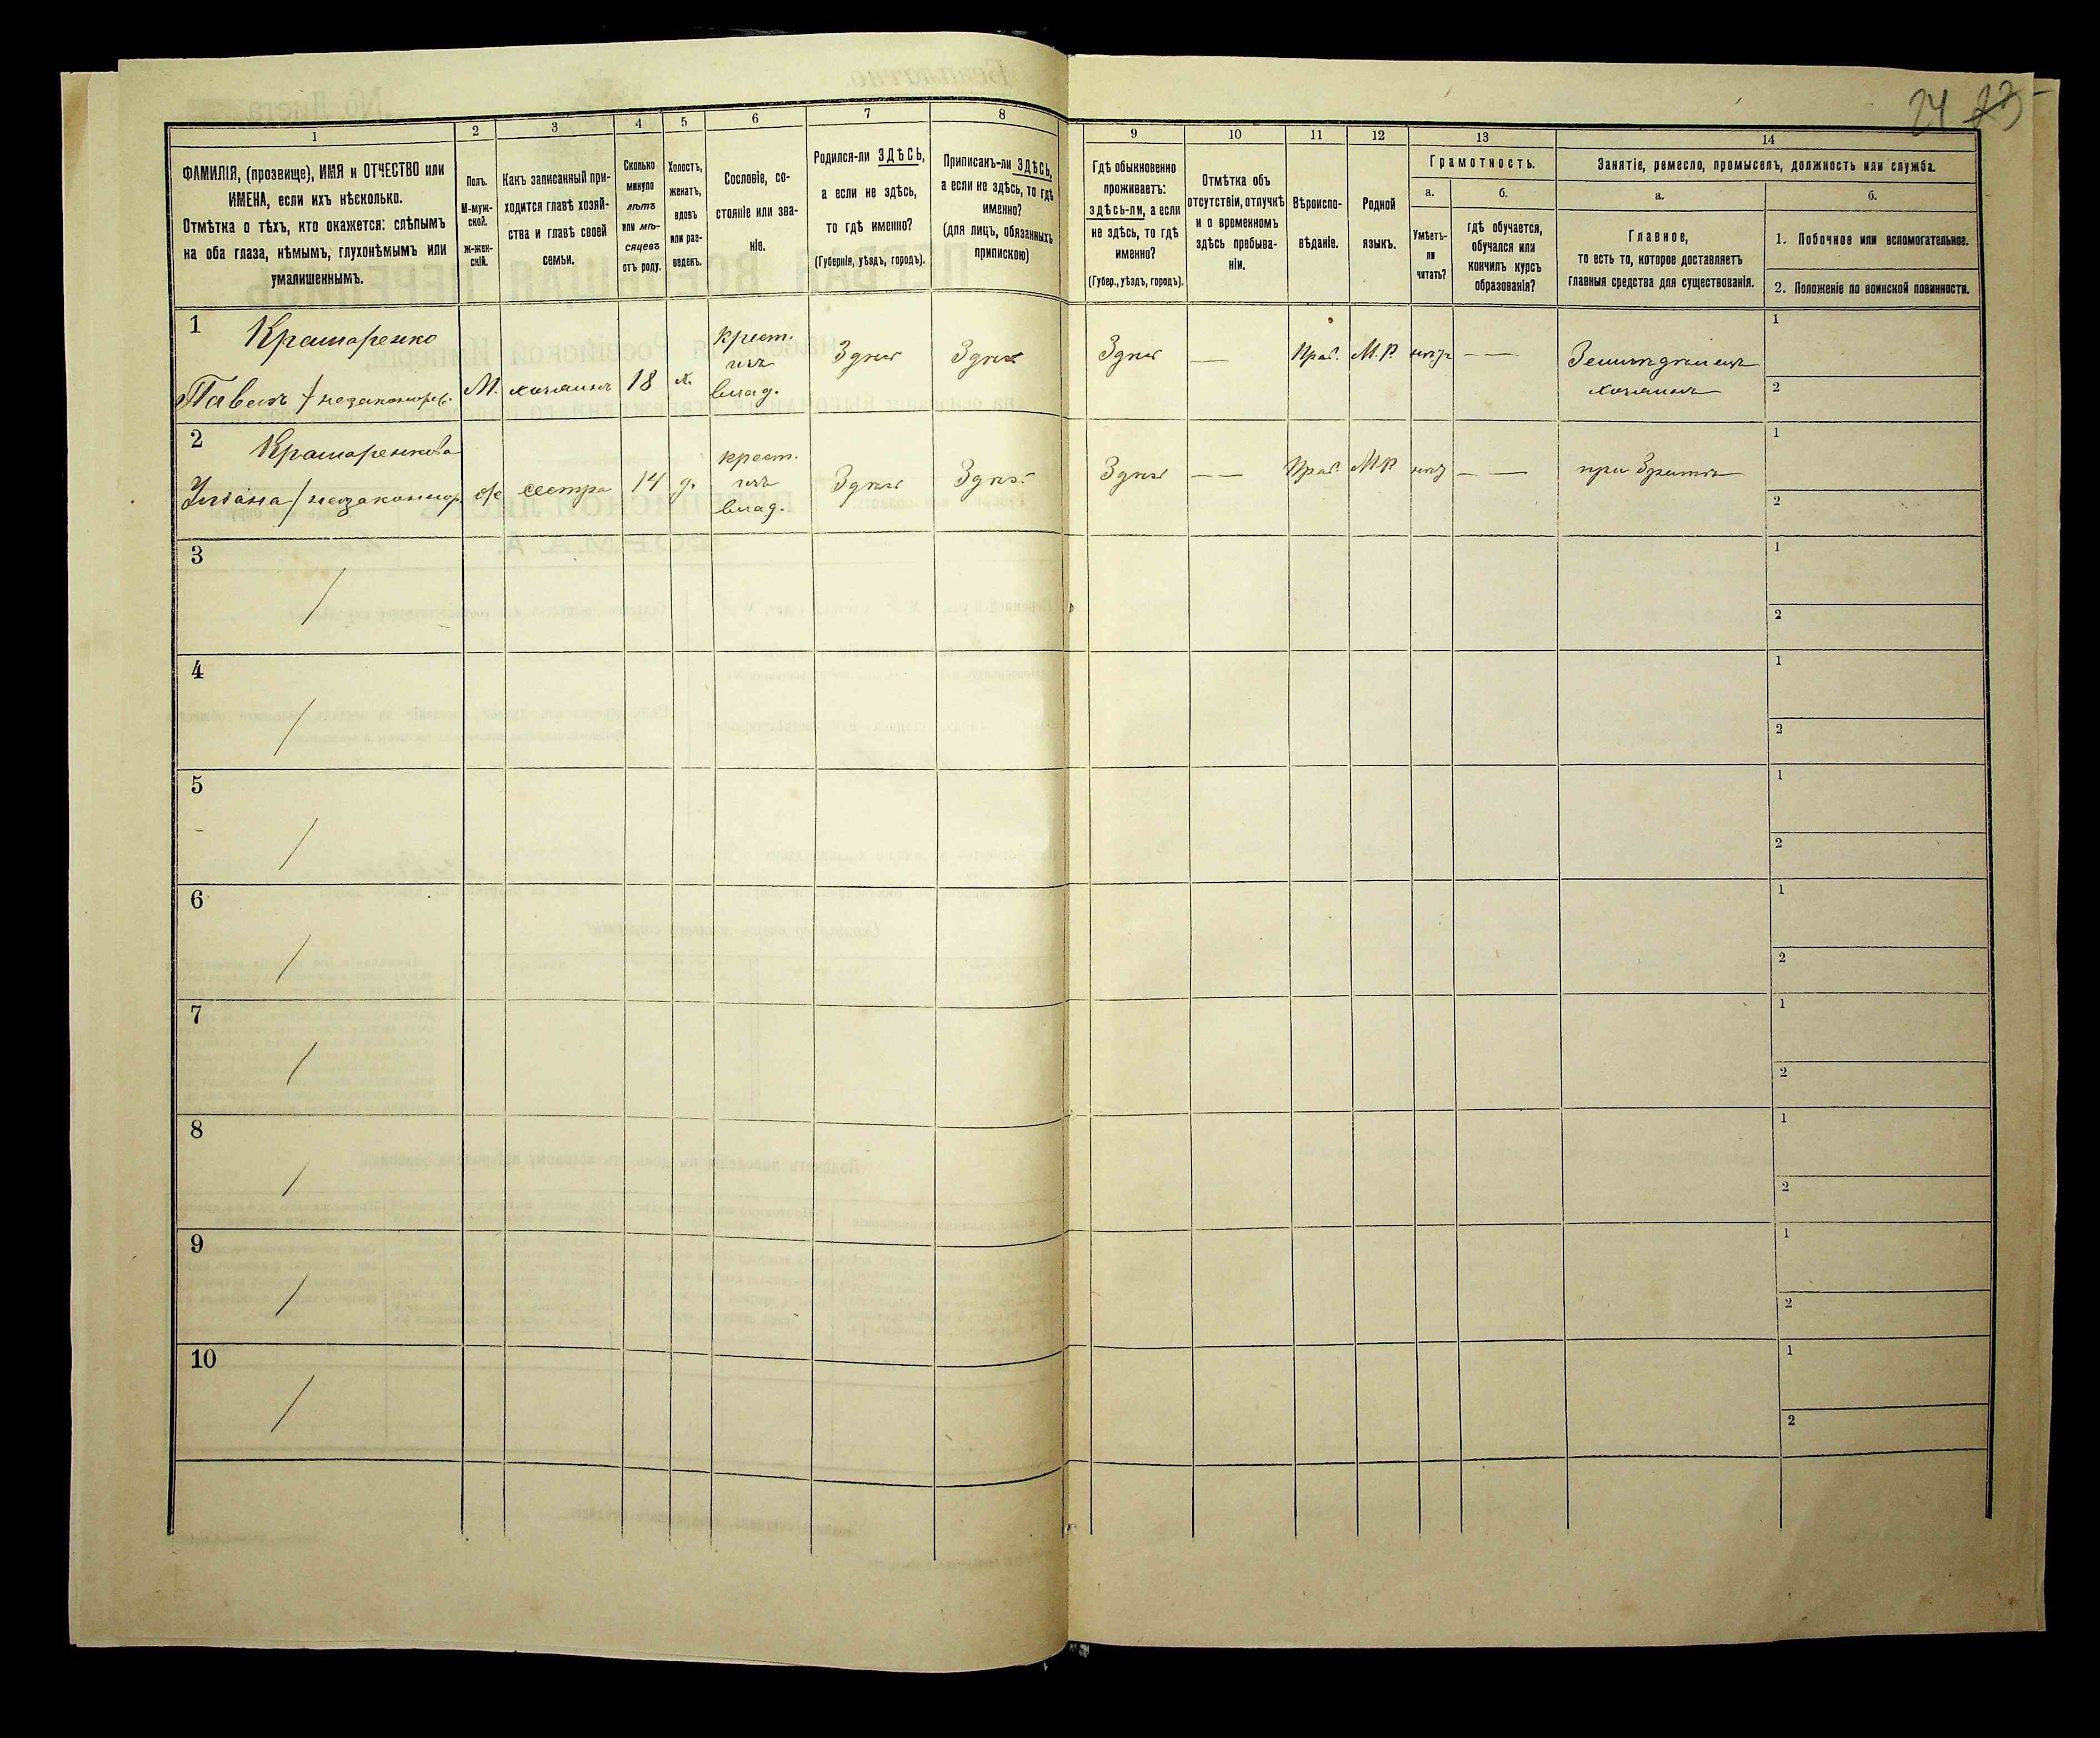 24 23
1
ФАМИЛІЯ, (прозвище), ИМЯ и ОТЧЕСТВО или
ИМЕНА, если ихъ нѣсколько.
Отмѣтка о тѣхъ, кто окажется: слѣпымъ
на оба глаза, нѣмымъ, глухонѣмымъ или
умалишеннымъ.
2
Полъ.
М-муж-
ской.
ж-жен-
скій.
3
Какъ записанный при-
ходится главѣ хозяй-
ства и главѣ своей
семьи.
4
Сколько
минуло
лѣтъ
или мѣ-
сяцевъ
отъ роду.
5
Холостъ,
женатъ,
вдовъ
или раз-
веденъ.
6
Сословіе, со-
стояніе или зва-
ніе.
7
Родился-ли ЗДѢСЬ,
а если не здѣсь,
то гдѣ именно?
(Губернія, уѣздъ, городъ).
8
Приписанъ-ли ЗДѢСЬ,
а если не здѣсь, то гдѣ
именно?
(для лицъ, обязанныхъ
припискою)
9
Гдѣ обыкновенно
проживаетъ:
здѣсь-ли, а если
не здѣсь, то гдѣ
именно?
(Губер., уѣздъ, городъ).
10
Отмѣтка объ
отсутствіи, отлучкѣ
и о временномъ
здѣсь пребыва-
ніи.
11
Вѣроиспо-
вѣданіе.
12
Родной
языкъ.
13
Грамотность.
а.
Умѣетъ-
ли
читать?
б.
гдѣ обучается,
обучался или
кончилъ курсъ
образованія?
14
Занятіе, ремесло, промыселъ, должность или служба.
а.
Главное,
то есть то, которое доставляетъ
главныя средства для существованія.
б.
1. Побочное или вспомогательное.
2. Положеніе по воинской повинности.
1 Крамаренко
Павелъ /незаконорж. М. хозяинъ 18 х. крест. изъ влад. Здѣсь Здѣсь Здѣсь — Прав. М.Р. нѣтъ — — Земледѣлецъ хозяинъ 1
2
2 Крамаренкова
Уліана / незаконнор. ж сестра 14 д. крест. изъ влад. Здѣсь Здѣсь Здѣсь — — Прав. М.Р нѣтъ — — при братѣ 1
2
3 / 1
2
4 / 1
2
5 / 1
2
6 / 1
2
7 / 1
2
8 / 1
2
9 / 1
2
10 / 1
2